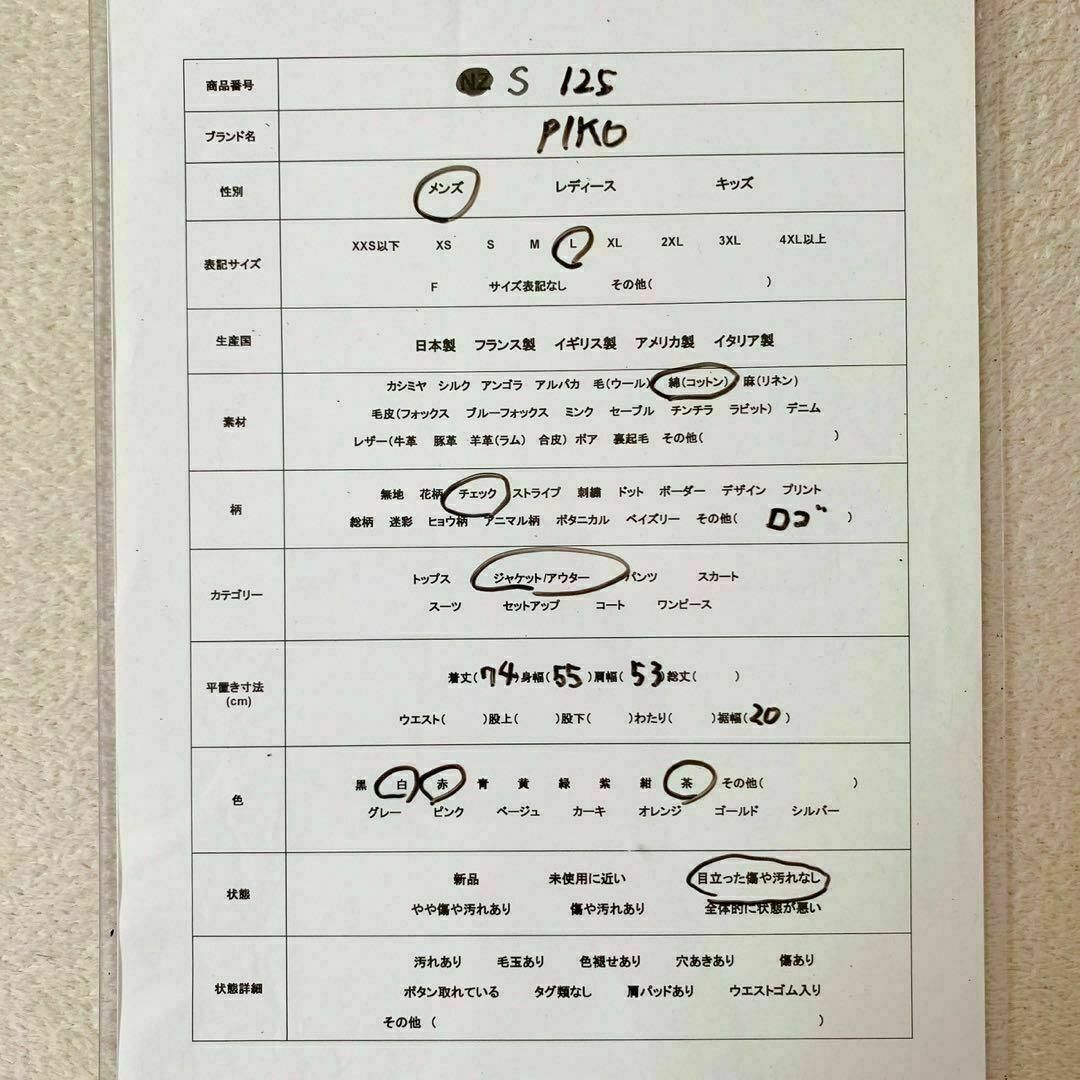 商品番号 NZ S 125
ブランド名 PIKO
性別 メンズ レディース キッズ
XXS以下 XS S M L XL 2XL 3XL 4XL以上
表記サイズ
F サイズ表記なし その他( )
生産国 日本製 フランス製 イギリス製 アメリカ製 イタリア製
カシミヤ シルク アンゴラ アルパカ 毛(ウール) 綿(コットン) 麻(リネン)
素材 毛皮(フォックス ブルーフォックス ミンク セーブル チンチラ ラビット) デニム
レザー(牛革 豚革 羊革(ラム) 合皮) ボア 裏起毛 その他( )
無地 花柄 チェック ストライプ 刺繍 ドット ボーダー デザイン プリント
柄
総柄 迷彩 ヒョウ柄 アニマル柄 ボタニカル ペイズリー その他( ロゴ )
トップス ジャケット/アウター パンツ スカート
カテゴリー
スーツ セットアップ コート ワンピース
着丈(74)身幅(55)肩幅(53総丈( )
平置き寸法
(cm)
ウエスト( )股上( )股下( )わたり( )裾幅(20)
黒 白 赤 青 黄 緑 紫 紺 茶 その他( )
色
グレー ピンク ベージュ カーキ オレンジ ゴールド シルバー
新品 未使用に近い 目立った傷や汚れなし
状態
やや傷や汚れあり 傷や汚れあり 全体的に状態が悪い
汚れあり 毛玉あり 色褪せあり 穴あきあり 傷あり
状態詳細 ボタン取れている タグ類なし 肩パッドあり ウエストゴム入り
その他 ( )